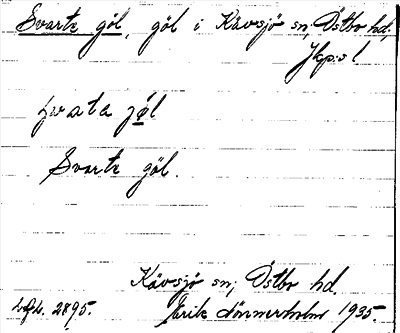 Svarta göl, göl i Kävsjö sn, Östbo hd,
Jkp:s l
svata jø̀l
Svarta göl.
Kävsjö sn, Östbo hd.
2895. 1935.